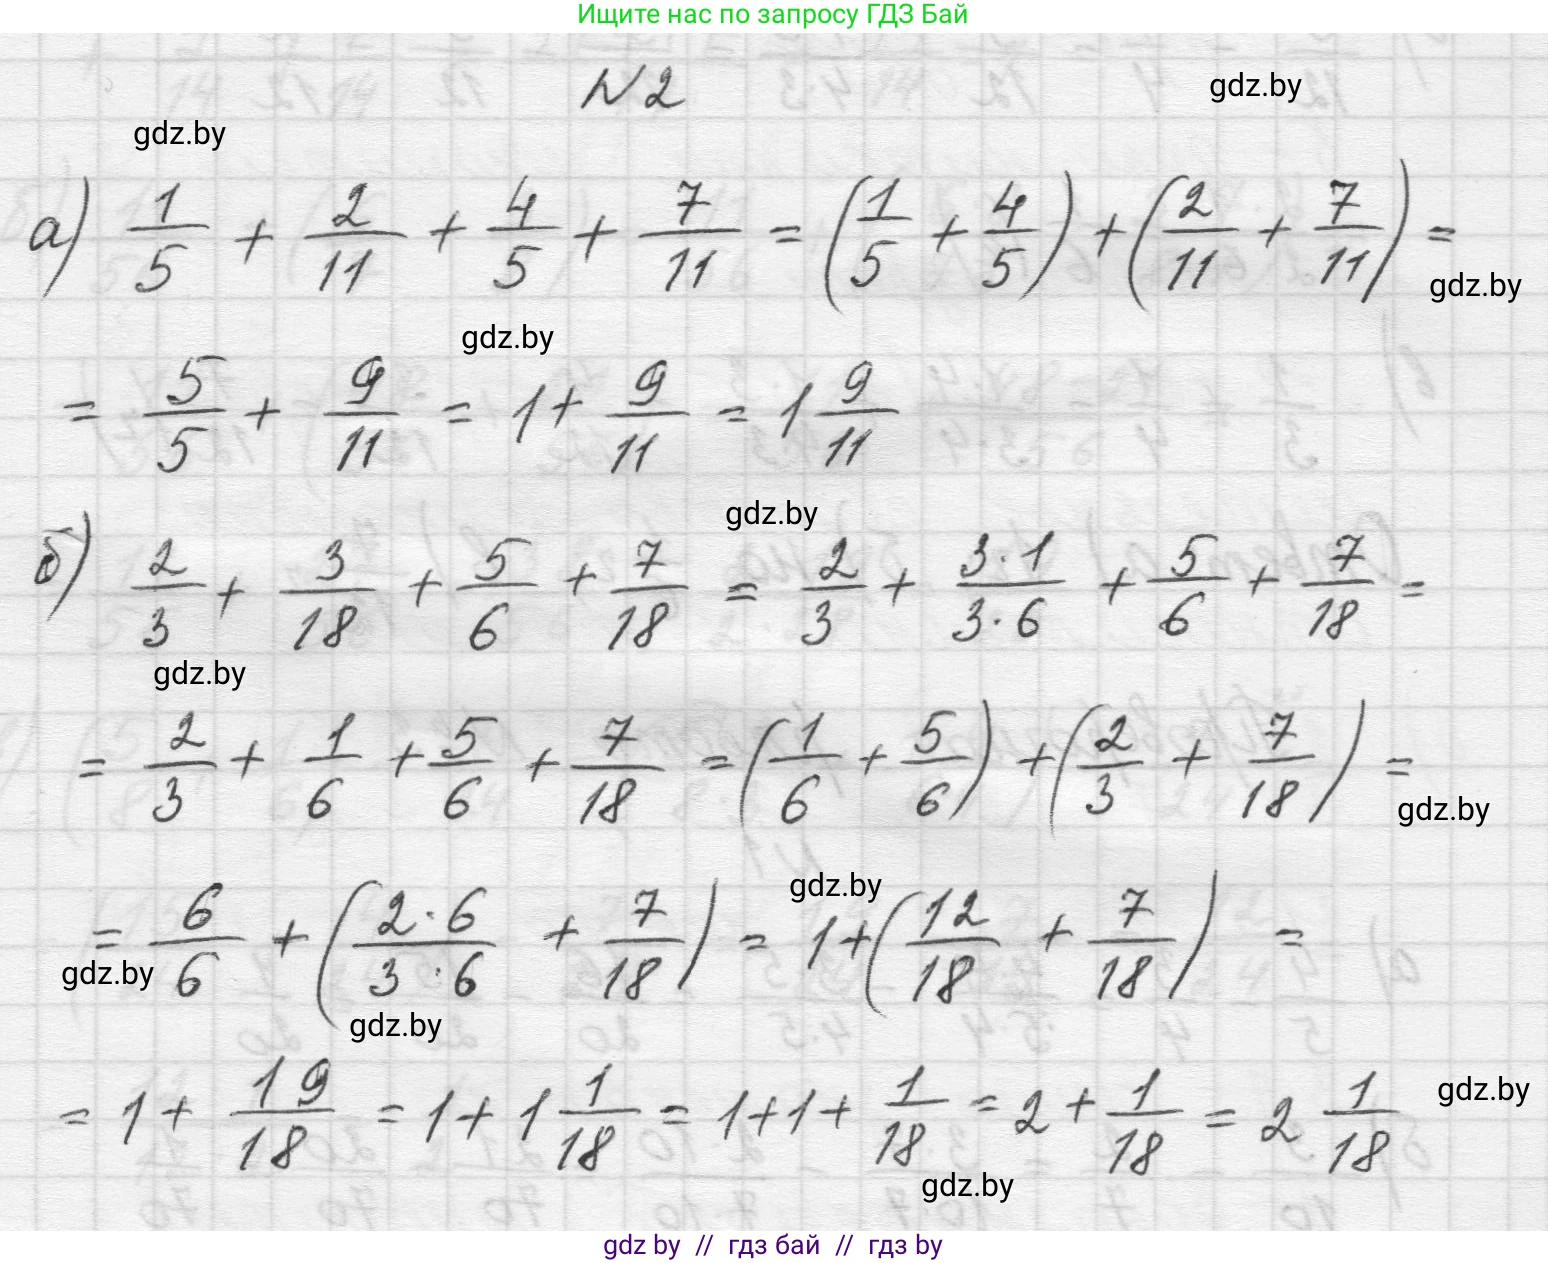 Ищите нас по запросу ГДЗ Бай
№2
gdz.by
gdz.by
а) 1/5 + 2/11 + 4/5 + 7/11 = (1/5 + 4/5) + (2/11 + 7/11) =
gdz.by
gdz.by
= 5/5 + 9/11 = 1 + 9/11 = 1 9/11
gdz.by
б) 2/3 + 3/18 + 5/6 + 7/18 = 2/3 + 3·1/3·6 + 5/6 + 7/18 =
gdz.by
= 2/3 + 1/6 + 5/6 + 7/18 = (1/6 + 5/6) + (2/3 + 7/18) =
gdz.by
gdz.by
= 6/6 + (2·6/3·6 + 7/18) = 1 + (12/18 + 7/18) =
gdz.by
gdz.by
= 1 + 19/18 = 1 + 1 1/18 = 1 + 1 + 1/18 = 2 + 1/18 = 2 1/18
gdz.by
gdz.by
gdz by // гдз бай // гдз by